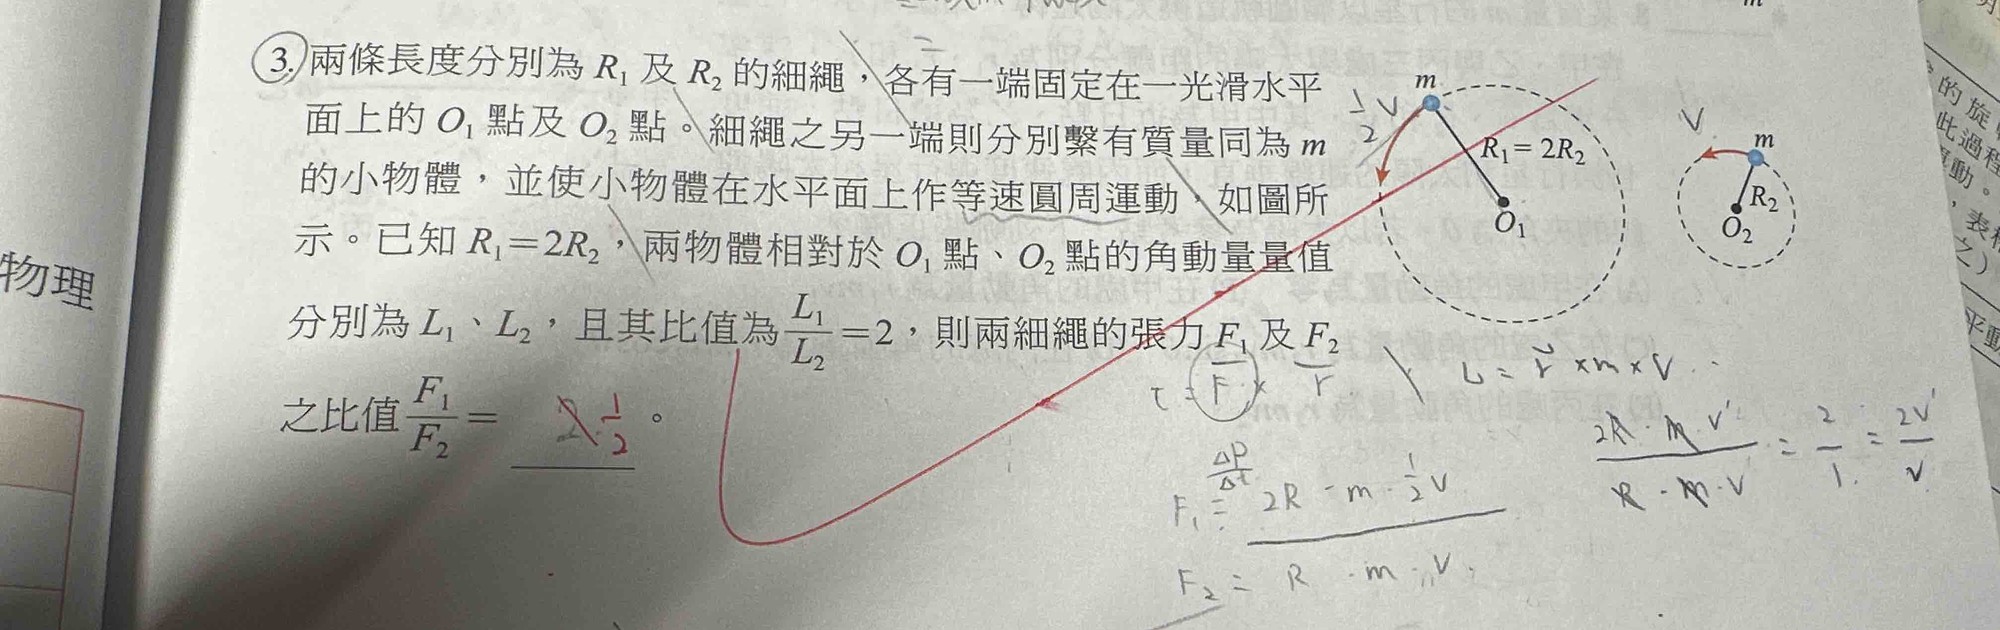 ③.兩條長度分別為 R₁ 及 R₂ 的細繩，各有一端固定在一光滑水平
面上的 O₁ 點及 O₂ 點。細繩之另一端則分別繫有質量同為 m
的小物體，並使小物體在水平面上作等速圓周運動，如圖所
示。已知 R₁=2R₂，兩物體相對於 O₁ 點、O₂ 點的角動量量值
分別為 L₁、L₂，且其比值為 L₁/L₂=2，則兩細繩的張力 F₁ 及 F₂
之比值 F₁/F₂= 1/2 。
m
1/2 V
R₁=2R₂
O₁
V
m
R₂
O₂
物理
τ = F × r
L = r⃗ × m × V
2R · m · V' / R · m · V = 2/1 = 2V'/V
ΔP/Δt
F₁ = 2R · m · 1/2 V
F₂ = R · m · V
的旋
此過程
動。
，表
之）
平動